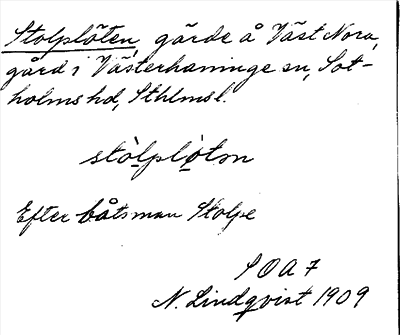 Stolplöten, gärde å Väst Nora,
gård i Västerhaninge sn, Sot-
holms hd, Sthlmsl.
stòlplo̲tən
Efter båtsman Stolpe
S O A 7
N. Lindqvist 1909